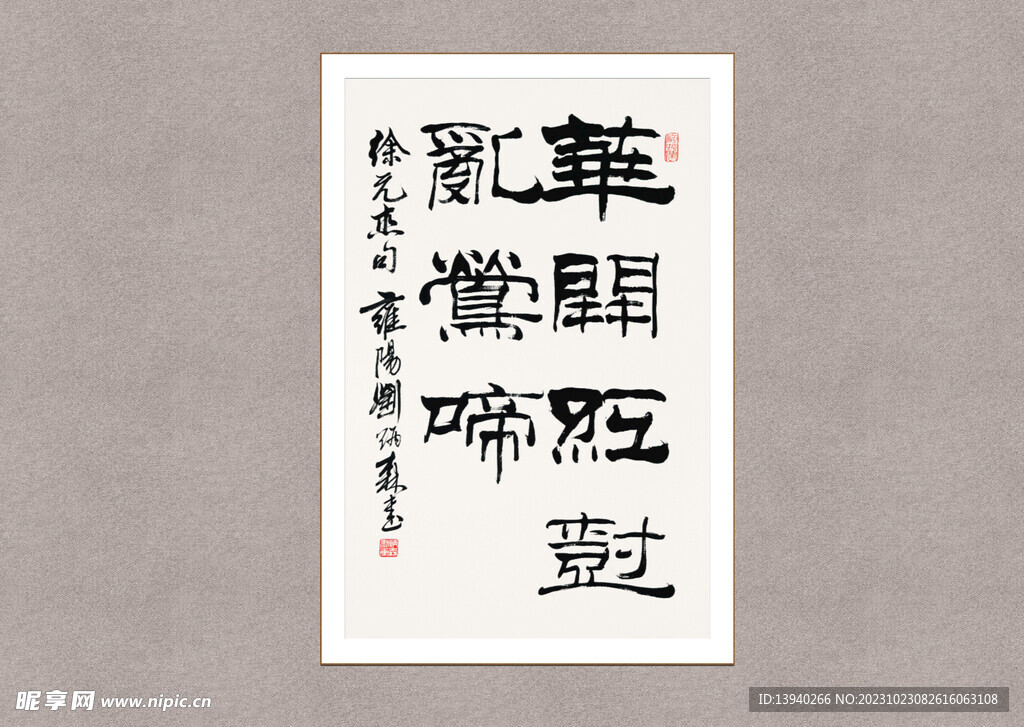 華開紅樹
亂鶯啼
徐元杰句 雍陽劉炳森書
昵享网 www.nipic.cn
ID:13940266 NO:20231023082616063108